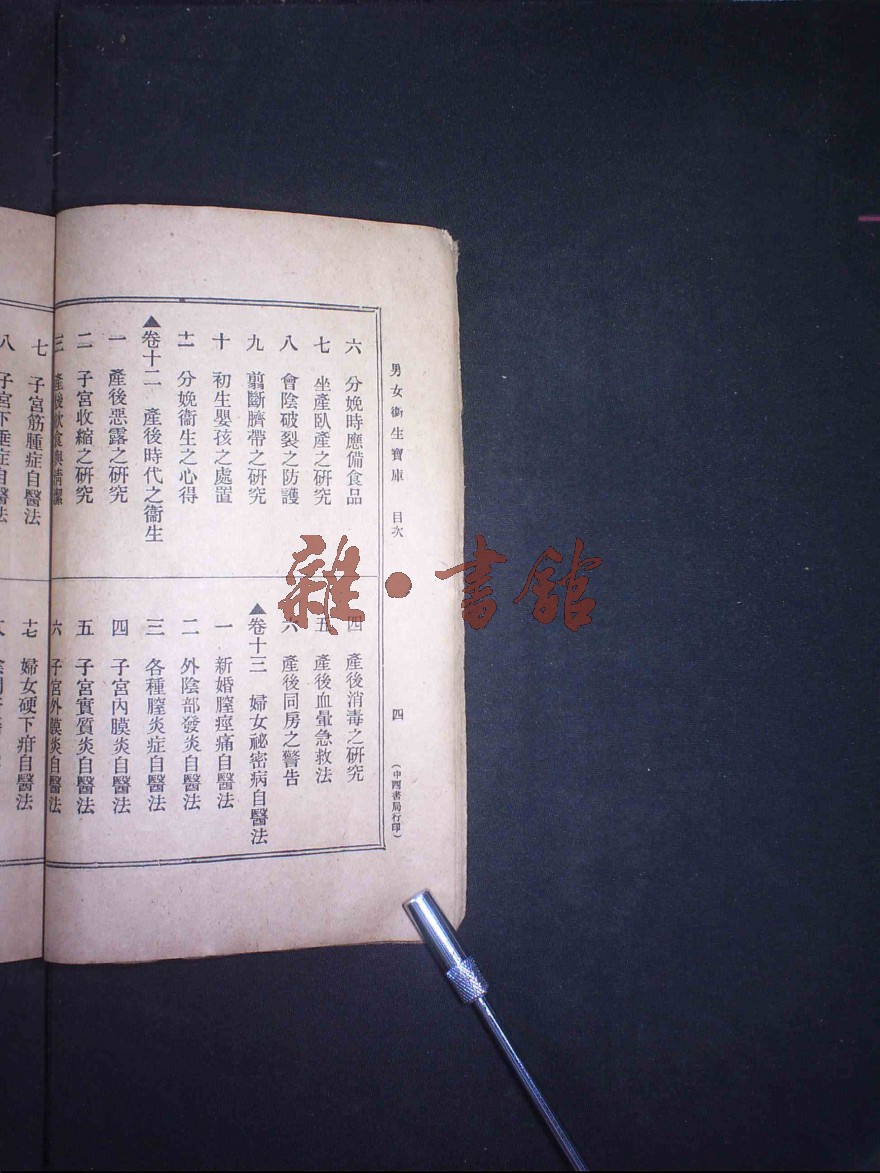 男女衞生寶庫 目次 四 (中西書局行印)
六 分娩時應備食品
七 坐產臥產之研究
八 會陰破裂之防護
九 翦斷臍帶之研究
十 初生嬰孩之處置
十一 分娩衞生之心得
▲卷十二 產後時代之衞生
一 產後惡露之研究
二 子宮收縮之研究
三 產後飲食與清潔
四 產後消毒之研究
五 產後血暈急救法
六 產後同房之警告
▲卷十三 婦女祕密病自醫法
一 新婚膣痙痛自醫法
二 外陰部發炎自醫法
三 各種膣炎症自醫法
四 子宮內膜炎自醫法
五 子宮實質炎自醫法
六 子宮外膜炎自醫法
七 子宮筋腫症自醫法
八 子宮下垂症自醫法
十七 婦女硬下疳自醫法
雜·書館